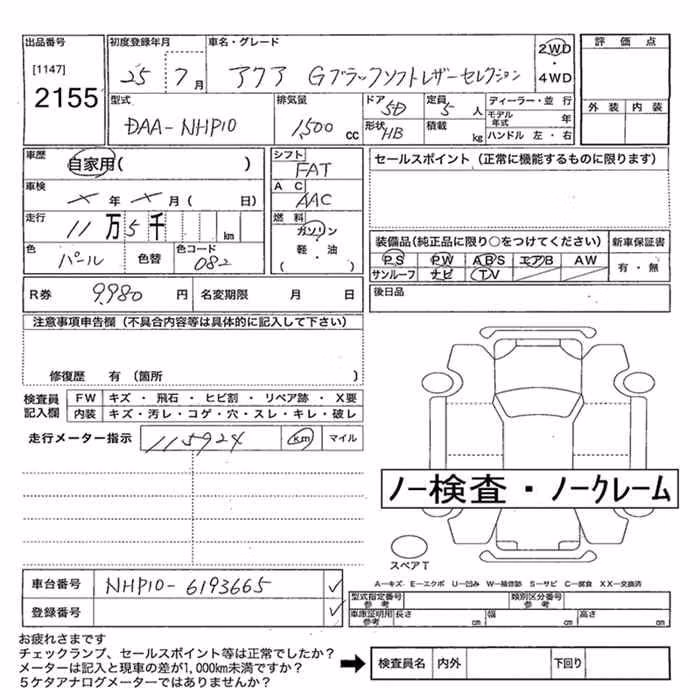 出品番号 初度登録年月 車名・グレード 評価点
[1147] 2155 25 7月 アクア Gブラックソフトレザーセレクション 2WD・4WD
外装 内装
型式 排気量 ドア 5D 定員 5人 ディーラー・並行
DAA-NHP10 1,500cc 形状 HB 積載 kg モデル年式 年
ハンドル 左・右
車歴 自家用( ) シフト FAT セールスポイント(正常に機能するものに限ります)
車検 ×年×月( 日) AC AAC
走行 11万5千 km 燃料 ガソリン 軽・油
色 パール 色替 色コード 082
装備品(純正品に限り○をつけてください) 新車保証書
PS PW ABS エアB AW 有・無
サンルーフ ナビ TV
R券 9,980円 名変期限 月 日 後日品
注意事項申告欄(不具合内容等は具体的に記入して下さい)
修復歴 有(箇所 )
検査員記入欄 FW キズ・飛石・ヒビ割・リペア跡・X要
内装 キズ・汚レ・コゲ・穴・スレ・キレ・破レ
走行メーター指示 115924 km マイル
ノー検査・ノークレーム
スペアT
A―キズ E―エクボ U―凹み W―補修跡 S―サビ C―腐食 XX―交換済
車台番号 NHP10-6193665 ✓
登録番号 ✓
型式指定番号 参考 類別区分番号 参考
車庫証明用 参考 長さ cm 幅 cm 高さ cm
お疲れさまです
チェックランプ、セールスポイント等は正常でしたか?
メーターは記入と現車の差が1,000km未満ですか?
5ケタアナログメーターではありませんか?
➡ 検査員名 内外 下回り